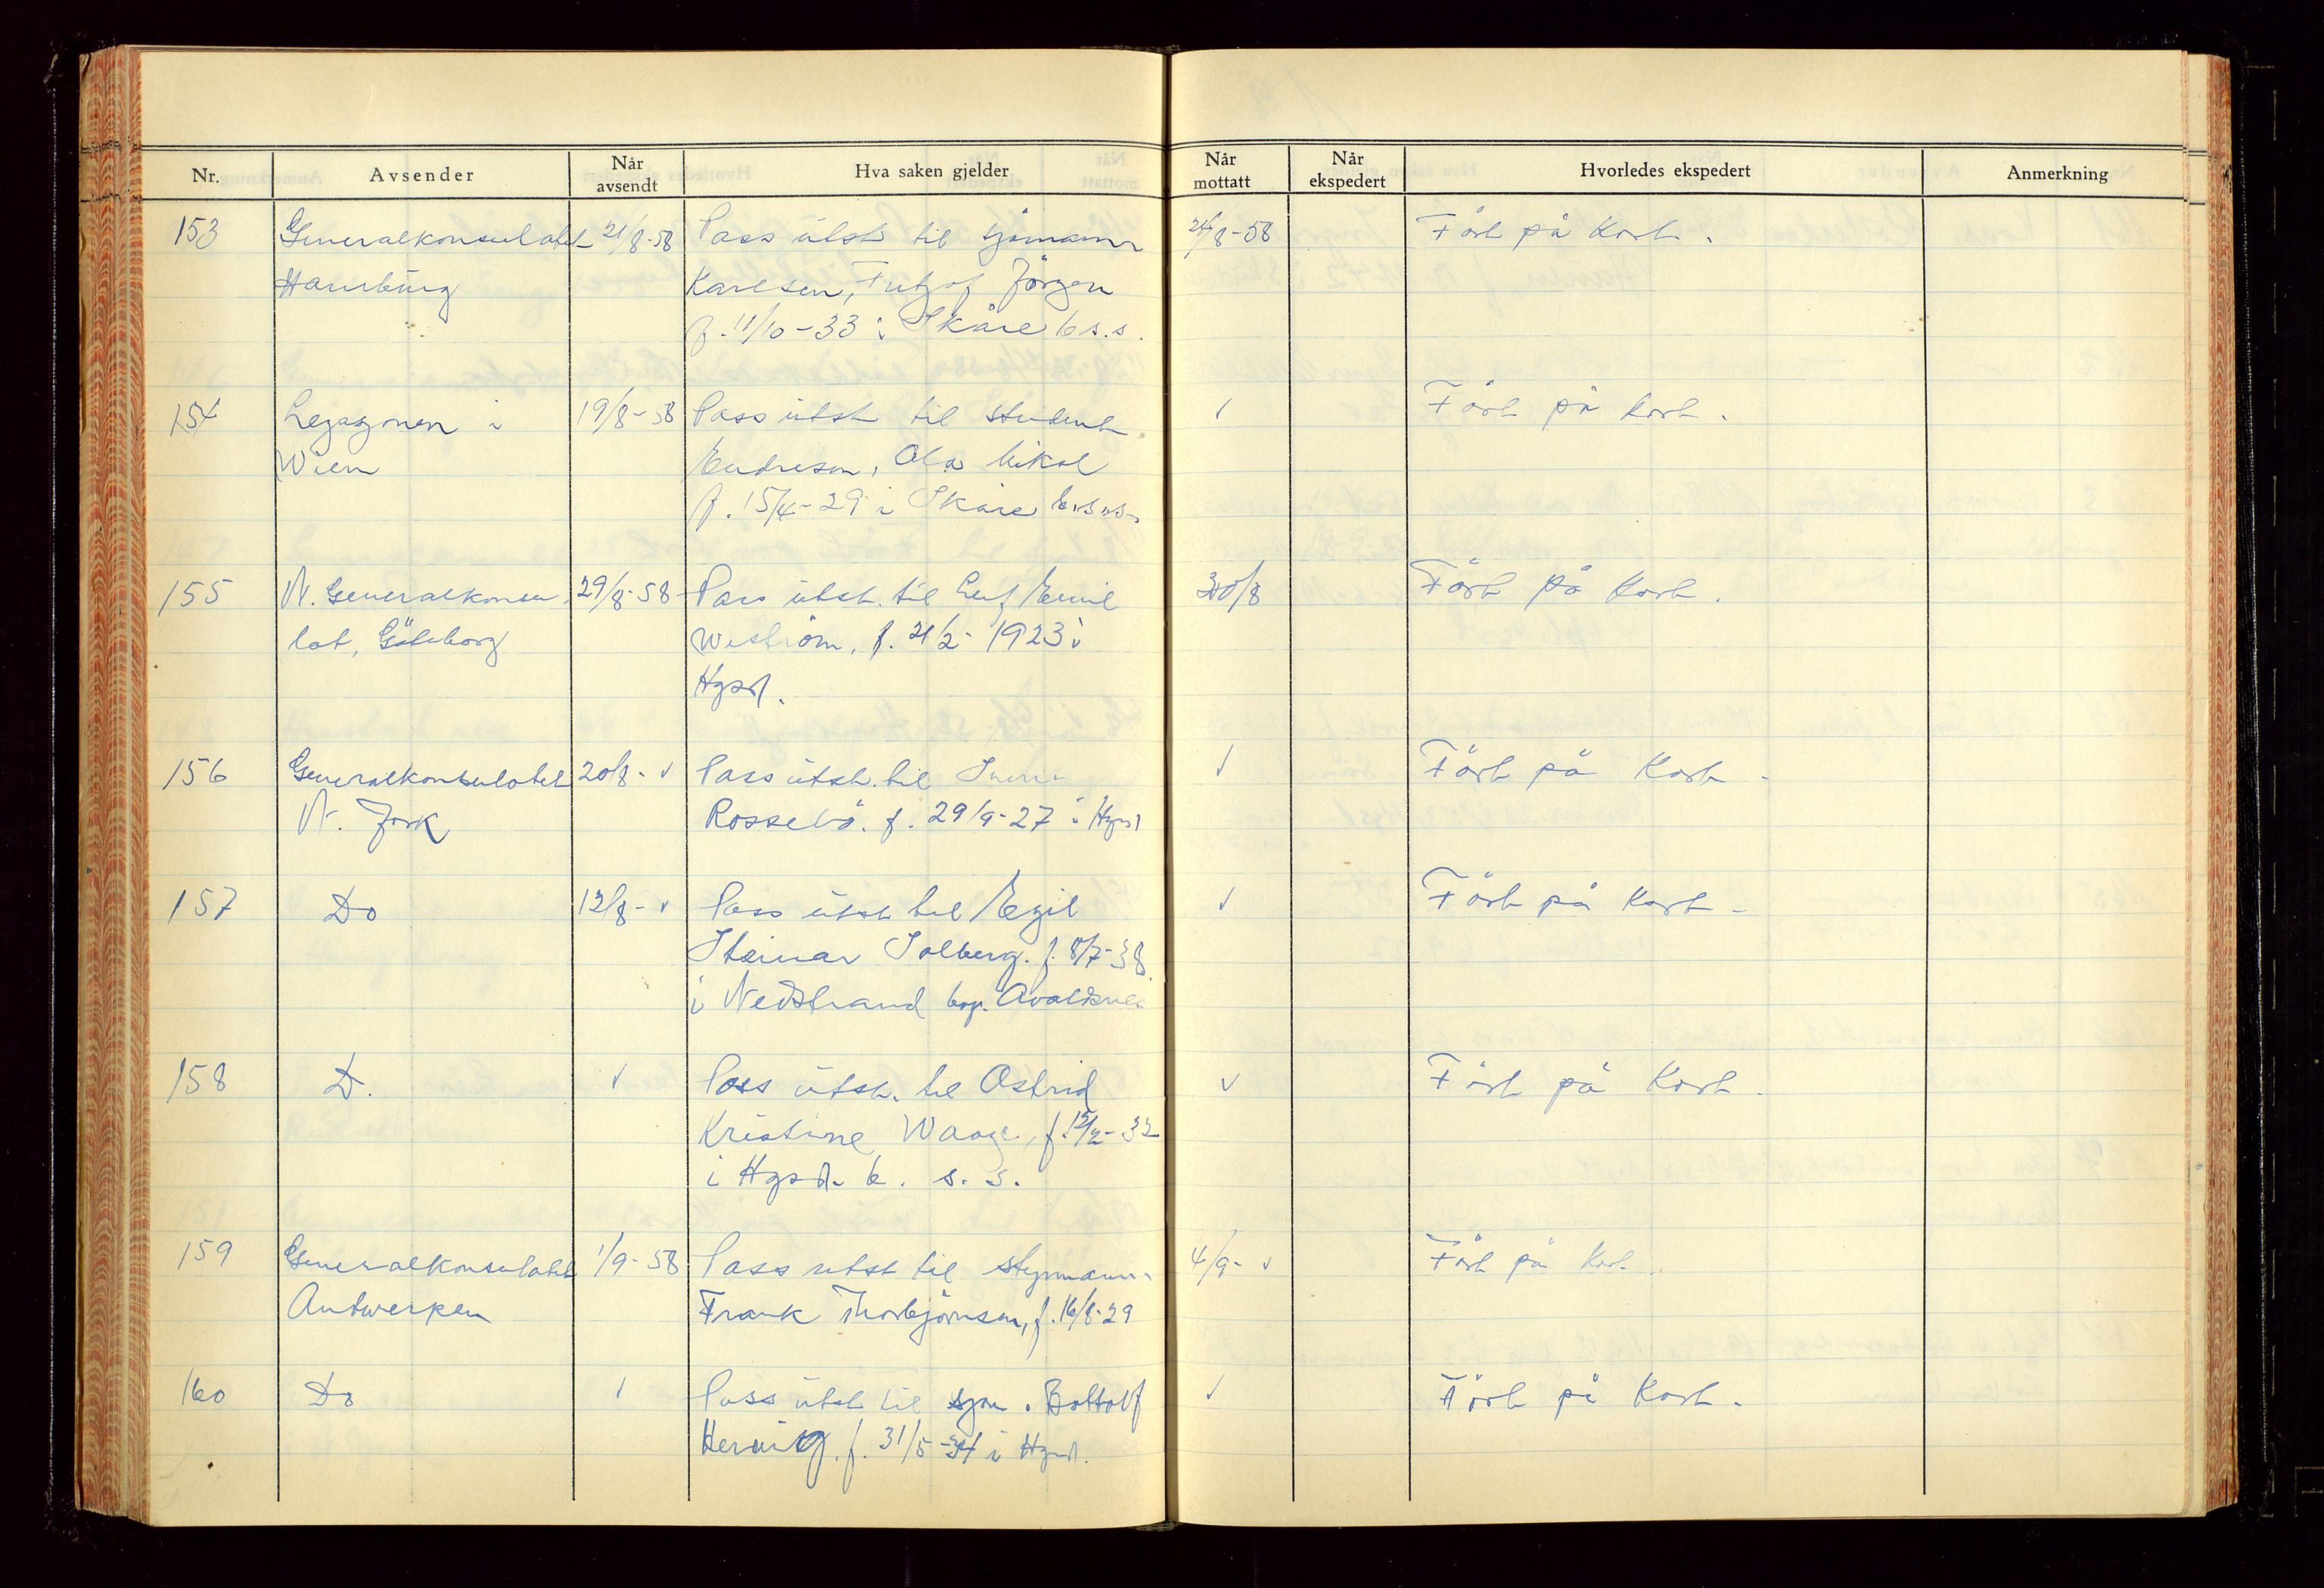 Nr. Avsender Når avsendt Hva saken gjelder Når mottatt Når ekspedert Hvorledes ekspedert Anmerkning
153 Generalkonsulatet 21/8-58 Pass utst til sjømann 24/8-58 Fört på Kort.
Hamburg Karlsen, Jörgen
f. 11/10-33 i Skåre b s.s.
154 Legasjonen i 19/8-58 Pass utst til student ✓ Fört på kort.
Wien Endresen, Ola Mikal
f. 15/4-29 i Skåre b.s.s.
155 N. Generalkonsu 29/8-58 Pass utst. til Leif Emil 30/8 Fört på Kort.
lat, Göteborg Weström, f. 21/2-1923 i
Hgsd.
156 Generalkonsulatet 20/8- ✓ Pass utst. til ✓ Fört på Kort -
N. York Rossebö. f. 29/9-27 i Hgsd
157 Do 12/8- ✓ Pass utst. til Egil ✓ Fört på Kort -
Steinar Solberg. f. 8/7-38
i Nedstrand bop. Avaldsnes
158 D. ✓ Pass utst. til Astrid ✓ Fört på Kort.
Kristine Waage, f. 15/2-32
i Hgsd. b. s. s.
159 Generalkonsulatet 1/9-58 Pass utst til styrmann 4/9- ✓ Fört på Kort.
Antwerpen Frank Thorbjörnsen, f. 16/8-29
160 Do ✓ Pass utst til sjøm. Bottolf ✓ Fört på Kort.
f. 31/5-34 i Hgsd.